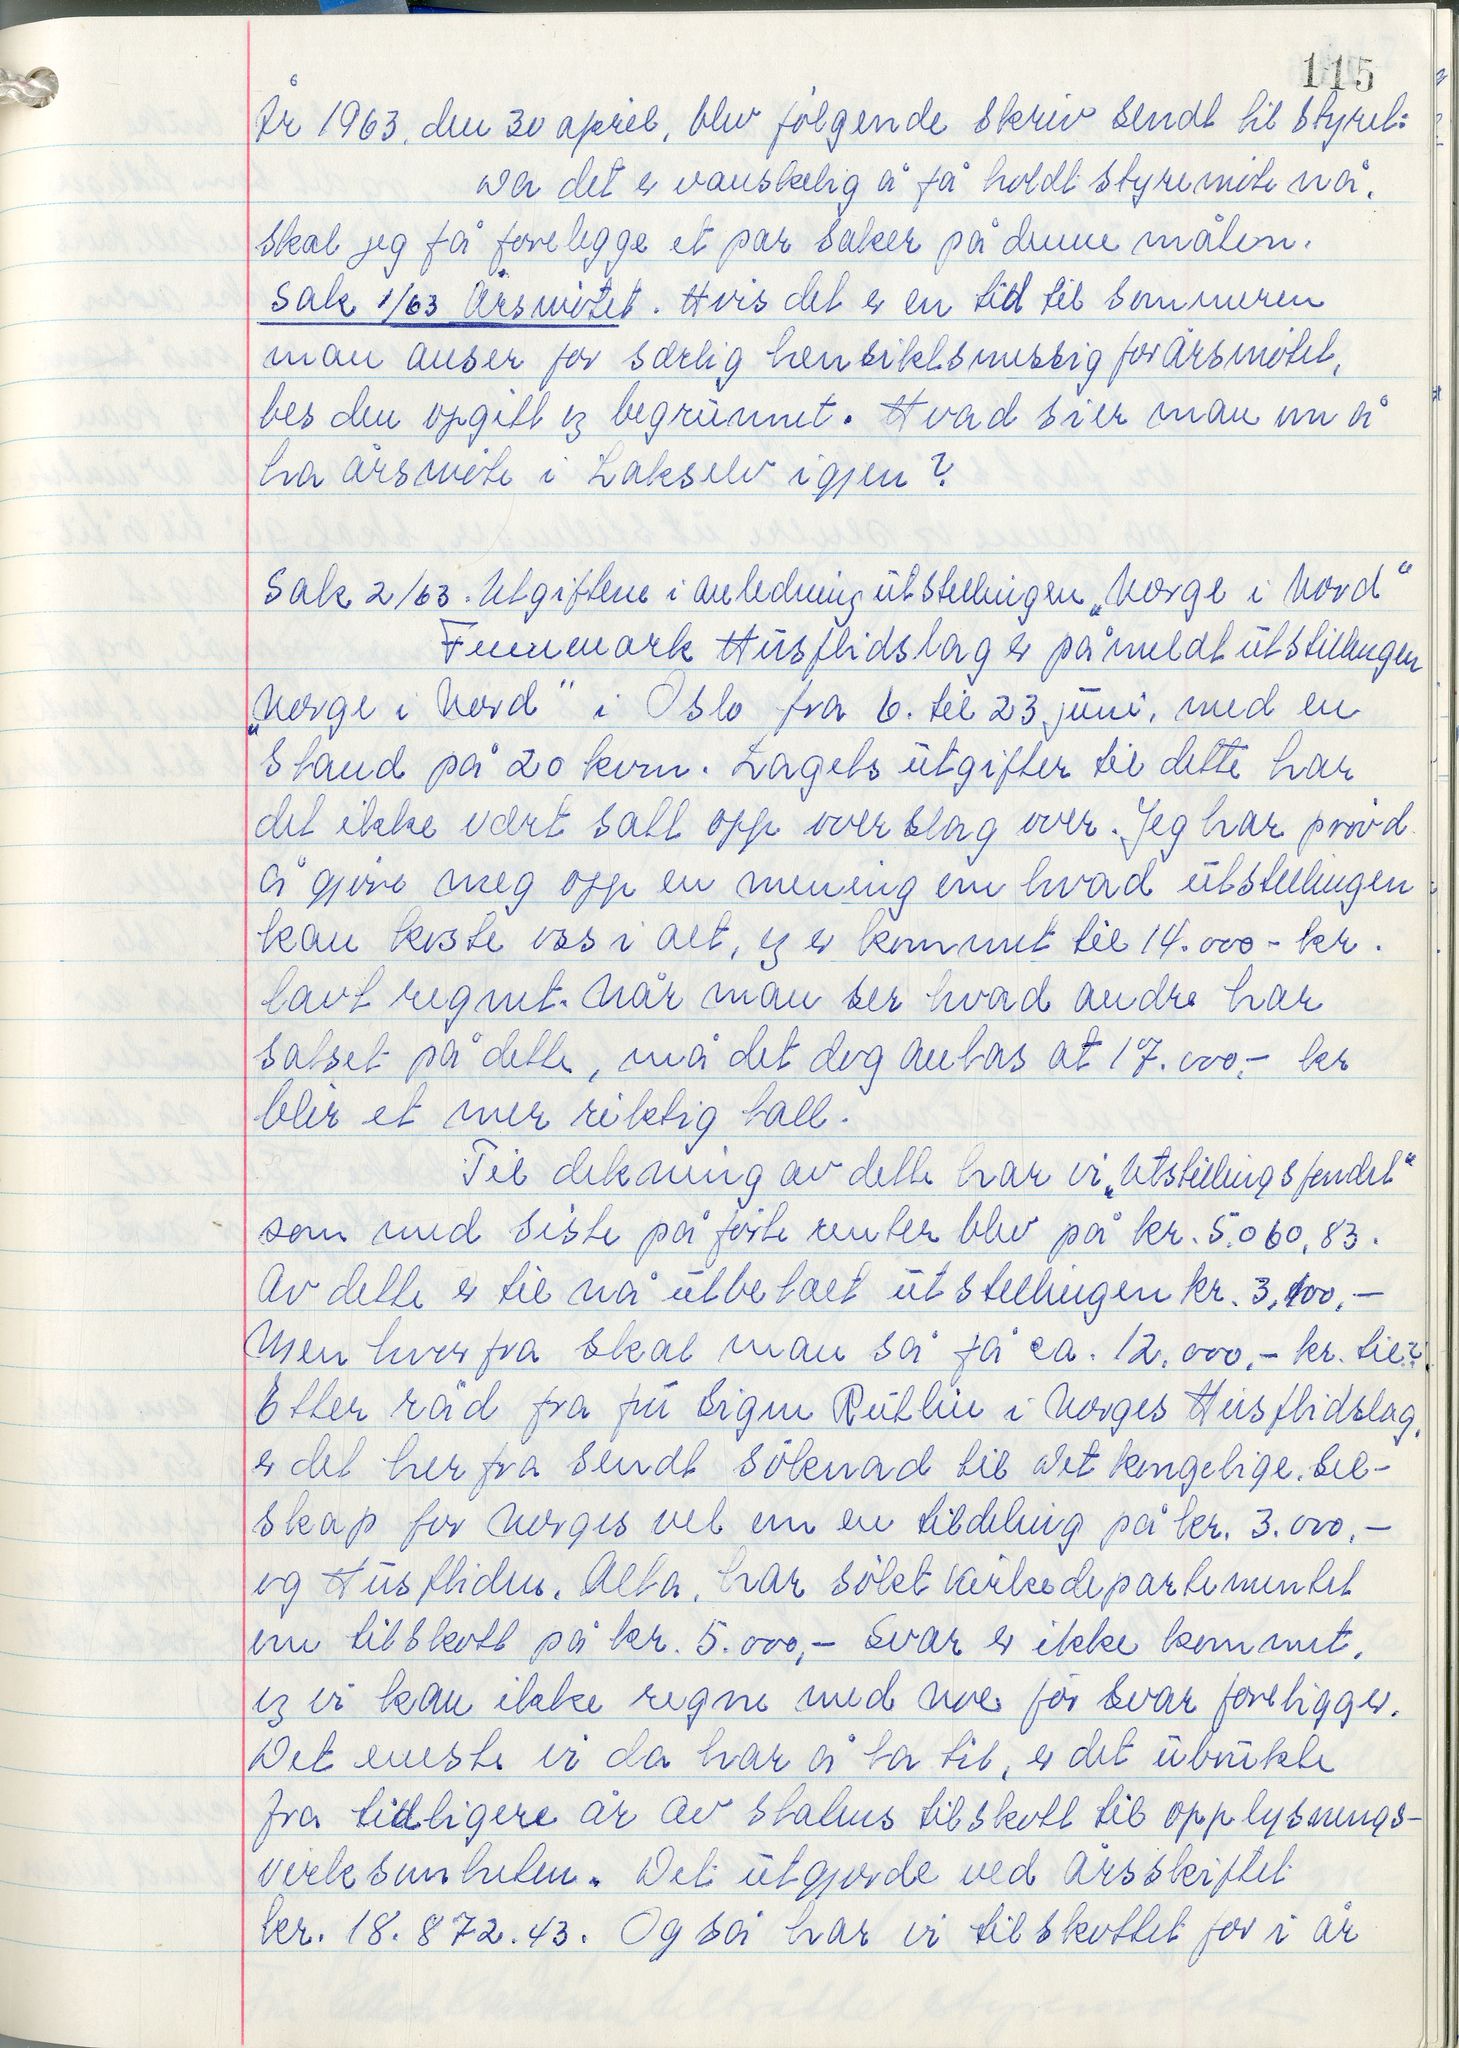 115
År 1963, den 30 april, blev følgende skriv sendt til styret:
Da det er vanskelig å få holdt styremöte nå,
skal jeg få forelegge et par saker på denne måten.
Sak 1/63 Årsmötet. Hvis det er en tid til sommeren
man anser for særlig hensiktsmessig for årsmötet,
bes den opgitt og begrunnet. Hvad sier man om å
ha årsmöte i Lakselv igjen?
Sak 2/63. Utgiftene i anledning utstillingen „Norge i Nord"
Finnmark Husflidslag er påmeldt utstillingen
„Norge i Nord" i Oslo fra 6. til 23 juni, med en
stand på 20 kvm. Lagets utgifter til dette har
det ikke vært satt opp overslag over. Jeg har prövd
å gjöre meg opp en mening om hvad utstillingen
kan koste oss i alt, og er kommet til 14.000 - kr.
lavt regnet. Når man ser hvad andre har
satset på dette, må det dog antas at 17.000,- kr
blir et mer riktig tall.
Til dekning av dette har vi „Utstillingsfondet"
som med siste påförte renter blev på kr. 5.060,83.
Av dette er til nå utbetalt utstillingen kr. 3.100,-
Men hverfra skal man så få ca. 12.000,- kr. til?
Etter råd fra fru Signe Rutlin i Norges Husflidslag,
er det herfra sendt söknad til Det kongelige sel-
skap for Norges vel om en tildeling på kr. 3.000,-
og Husfliden, Alta, har sökt Kirkedepartementet
om tilskott på kr. 5.000,- Svar er ikke kommet,
og vi kan ikke regne med noe för svar foreligger.
Det eneste vi da har å ta til, er det ubrukte
fra tidligere år av statens tilskott til opplysnings-
virksomheten. Det utgjorde ved årsskiftet
kr. 18.872.43. Og så har vi tilskottet for i år